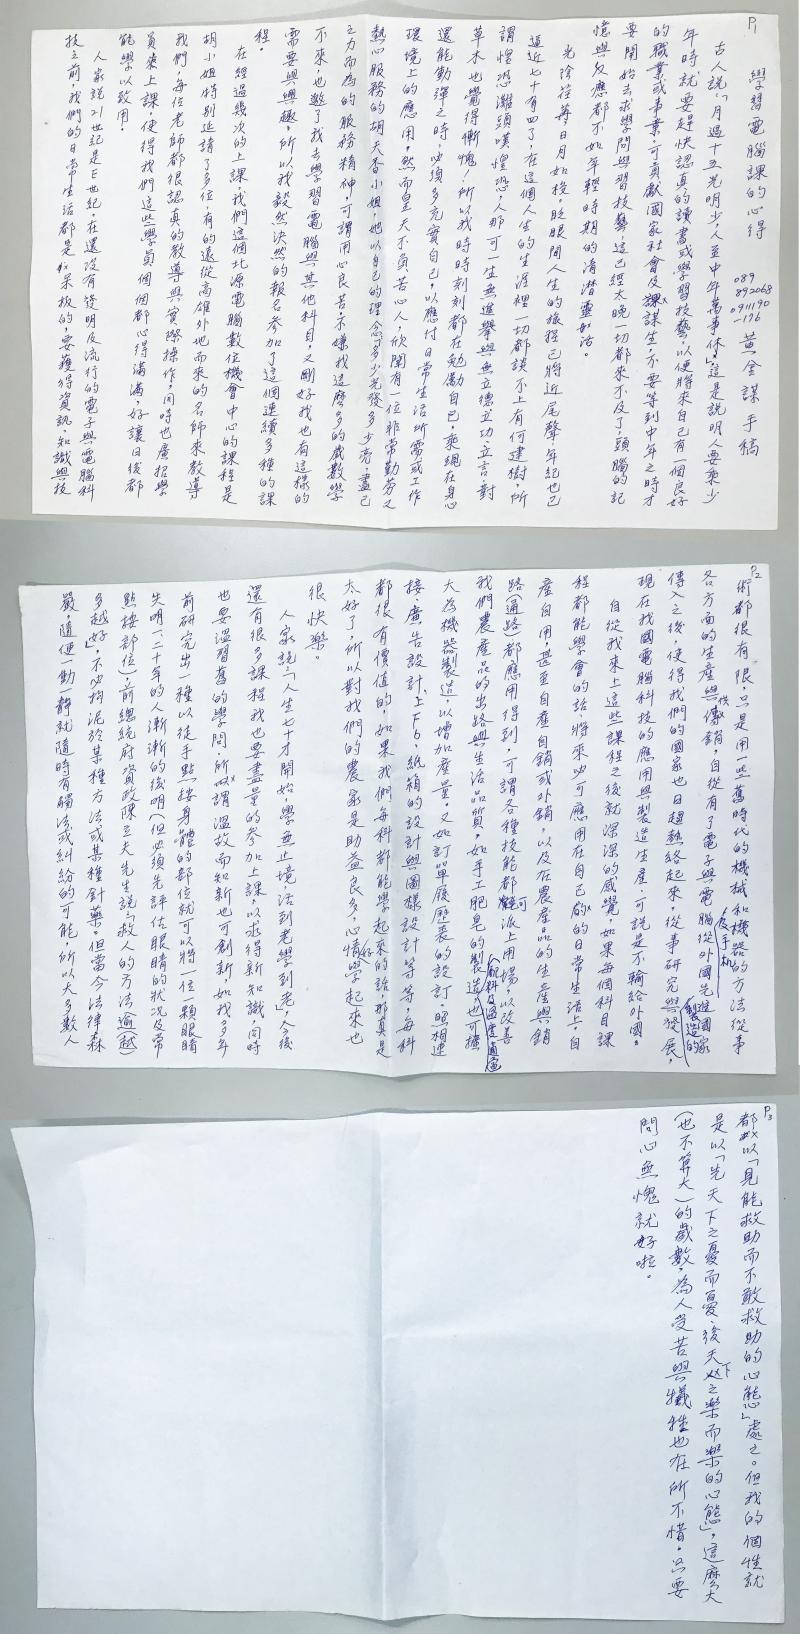 P1
學習電腦課的心得
089
892068
0911190
-176
黃金謀手稿
古人說:「月過十五光明少,人至中年萬事休」,這是說明人要乘少
年時就要趕快認真的讀書或學習技藝,以便將來自己有一個良好
的職業或事業,可貢獻國家社會及謀生,不要等到中年之時才
要開始去求學問與學習技藝,這已經太晚一切都來不及了,頭腦的記
憶與反應都不如年輕時期的清潛靈如活。
光陰荏苒,日月如梭,眨眼間人生的旅程已將近尾聲,年紀也已
逼近七十有四了,在這個人生的生涯裡一切都談不上有何建樹,所
謂惶恐灘頭嘆惶恐,人那可一生無進舉與無立德立功、立言,對
草木也覺得慚愧!所以我時時刻刻都在勉勵自己,乘現在身心
還能動彈之時,必須多充實自己,以應付日常生活所需或工作
環境上的應用,然而皇天不負苦心人,欣聞有一位非常勤勞又
熱心服務的胡天香小姐,她以自己的理念「多少光發多少亮」,盡己
之力而為的服務精神,可謂用心良苦,不嫌我這麼多的歲數學
不來,也邀了我去學習電腦與其他科目,又剛好我也有這樣的
需要與興趣,所以我毅然決然的報名參加了這個連續多種的課
程。
在經過幾次的上課,我們這個北源電腦數位機會中心的課程是
胡小姐特別延請了多位有的遠從高雄外地而來的名師來教導
我們,每位老師都很認真的教導與實際操作,同時也廣招學
員來上課,使得我們這些學員個個都心得滿滿,好讓日後都
能學以致用。
人家說21世紀是E世紀,在還沒有發明及流行的電子與電腦科
技之前,我們的日常生活都是很呆板的,要獲得資訊、知識與技
P2
術都很有限,只是用一些舊時代的機械和機器的方法從事
各方面的生產與傳銷,自從有了電子與電腦及手机從外國先進國家
傳入之後,使得我們的國家也日趨熱絡起來,從事研究與發展,
現在我國電腦科技的應用與製造生產,可說是不輸給外國製造的。
自從我來上這些課程之後就深深的感覺,如果每個科目課
程都能學會的話,將來必可應用在自己的日常生活上,自
產自用,甚至自產自銷或外銷,以及在農產品的生產與銷
路(通路)都應用得到,可謂各種技能都可派上用場,以改善
我們農產品的出路與生活品質,如手工肥皂的製造(配料及溫度適當)也可擴
大為機器製造,以增加產量,又如訂單履歷表的設訂,照相連
接廣告設計、上FB,紙箱的設計與圖樣設計等等,每科
都很有價值的,如果我們每科都能學起來的話,那真是
太好了,所以對我們的農家是助益良多,心情好學起來也
很快樂。
人家說:「人生七十才開始,學無止境,活到老學到老」,今後
還有很多課程我也要盡量的參加上課,以求得新知識,同時
也要溫習舊的學問,所謂溫故而知新也可創新,如我多年
前研究出一種以從手點按身體的部位就可以將一位一顆眼睛
失明一、二十年的人漸漸的復明(但必須先評估眼睛的狀況及常
點按部位),前總統府資政陳立夫先生說:「救人的方法逾(越)
多越好」,不必拘泥於某種方法或某種針藥。但當今法律森
嚴,隨便一動一靜就隨時有觸法或糾紛的可能,所以大多數人
P3
都以「見能救助而不敢救助的心態」處之。但我的個性就
是以「先天下之憂而憂、後天下之樂而樂的心態」,這麼大
(也不算大)的歲數,為人受苦與犧牲也在所不惜,只要
問心無愧就好啦。